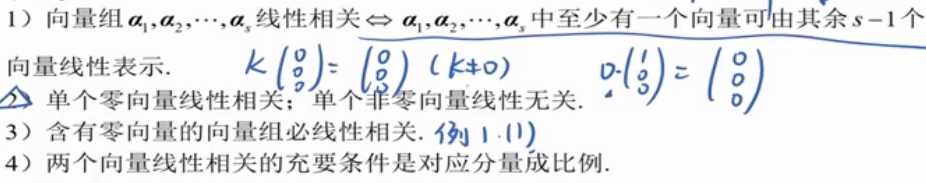 1）向量组 α₁,α₂,⋯,αₛ 线性相关⇔ α₁,α₂,⋯,αₛ 中至少有一个向量可由其余 s−1个
向量线性表示. K(0 0 0)=(0 0 0) (K≠0) 0·(1 0 0)=(0 0 0)
2）单个零向量线性相关；单个非零向量线性无关.
3）含有零向量的向量组必线性相关. 例1.(1)
4）两个向量线性相关的充要条件是对应分量成比例.